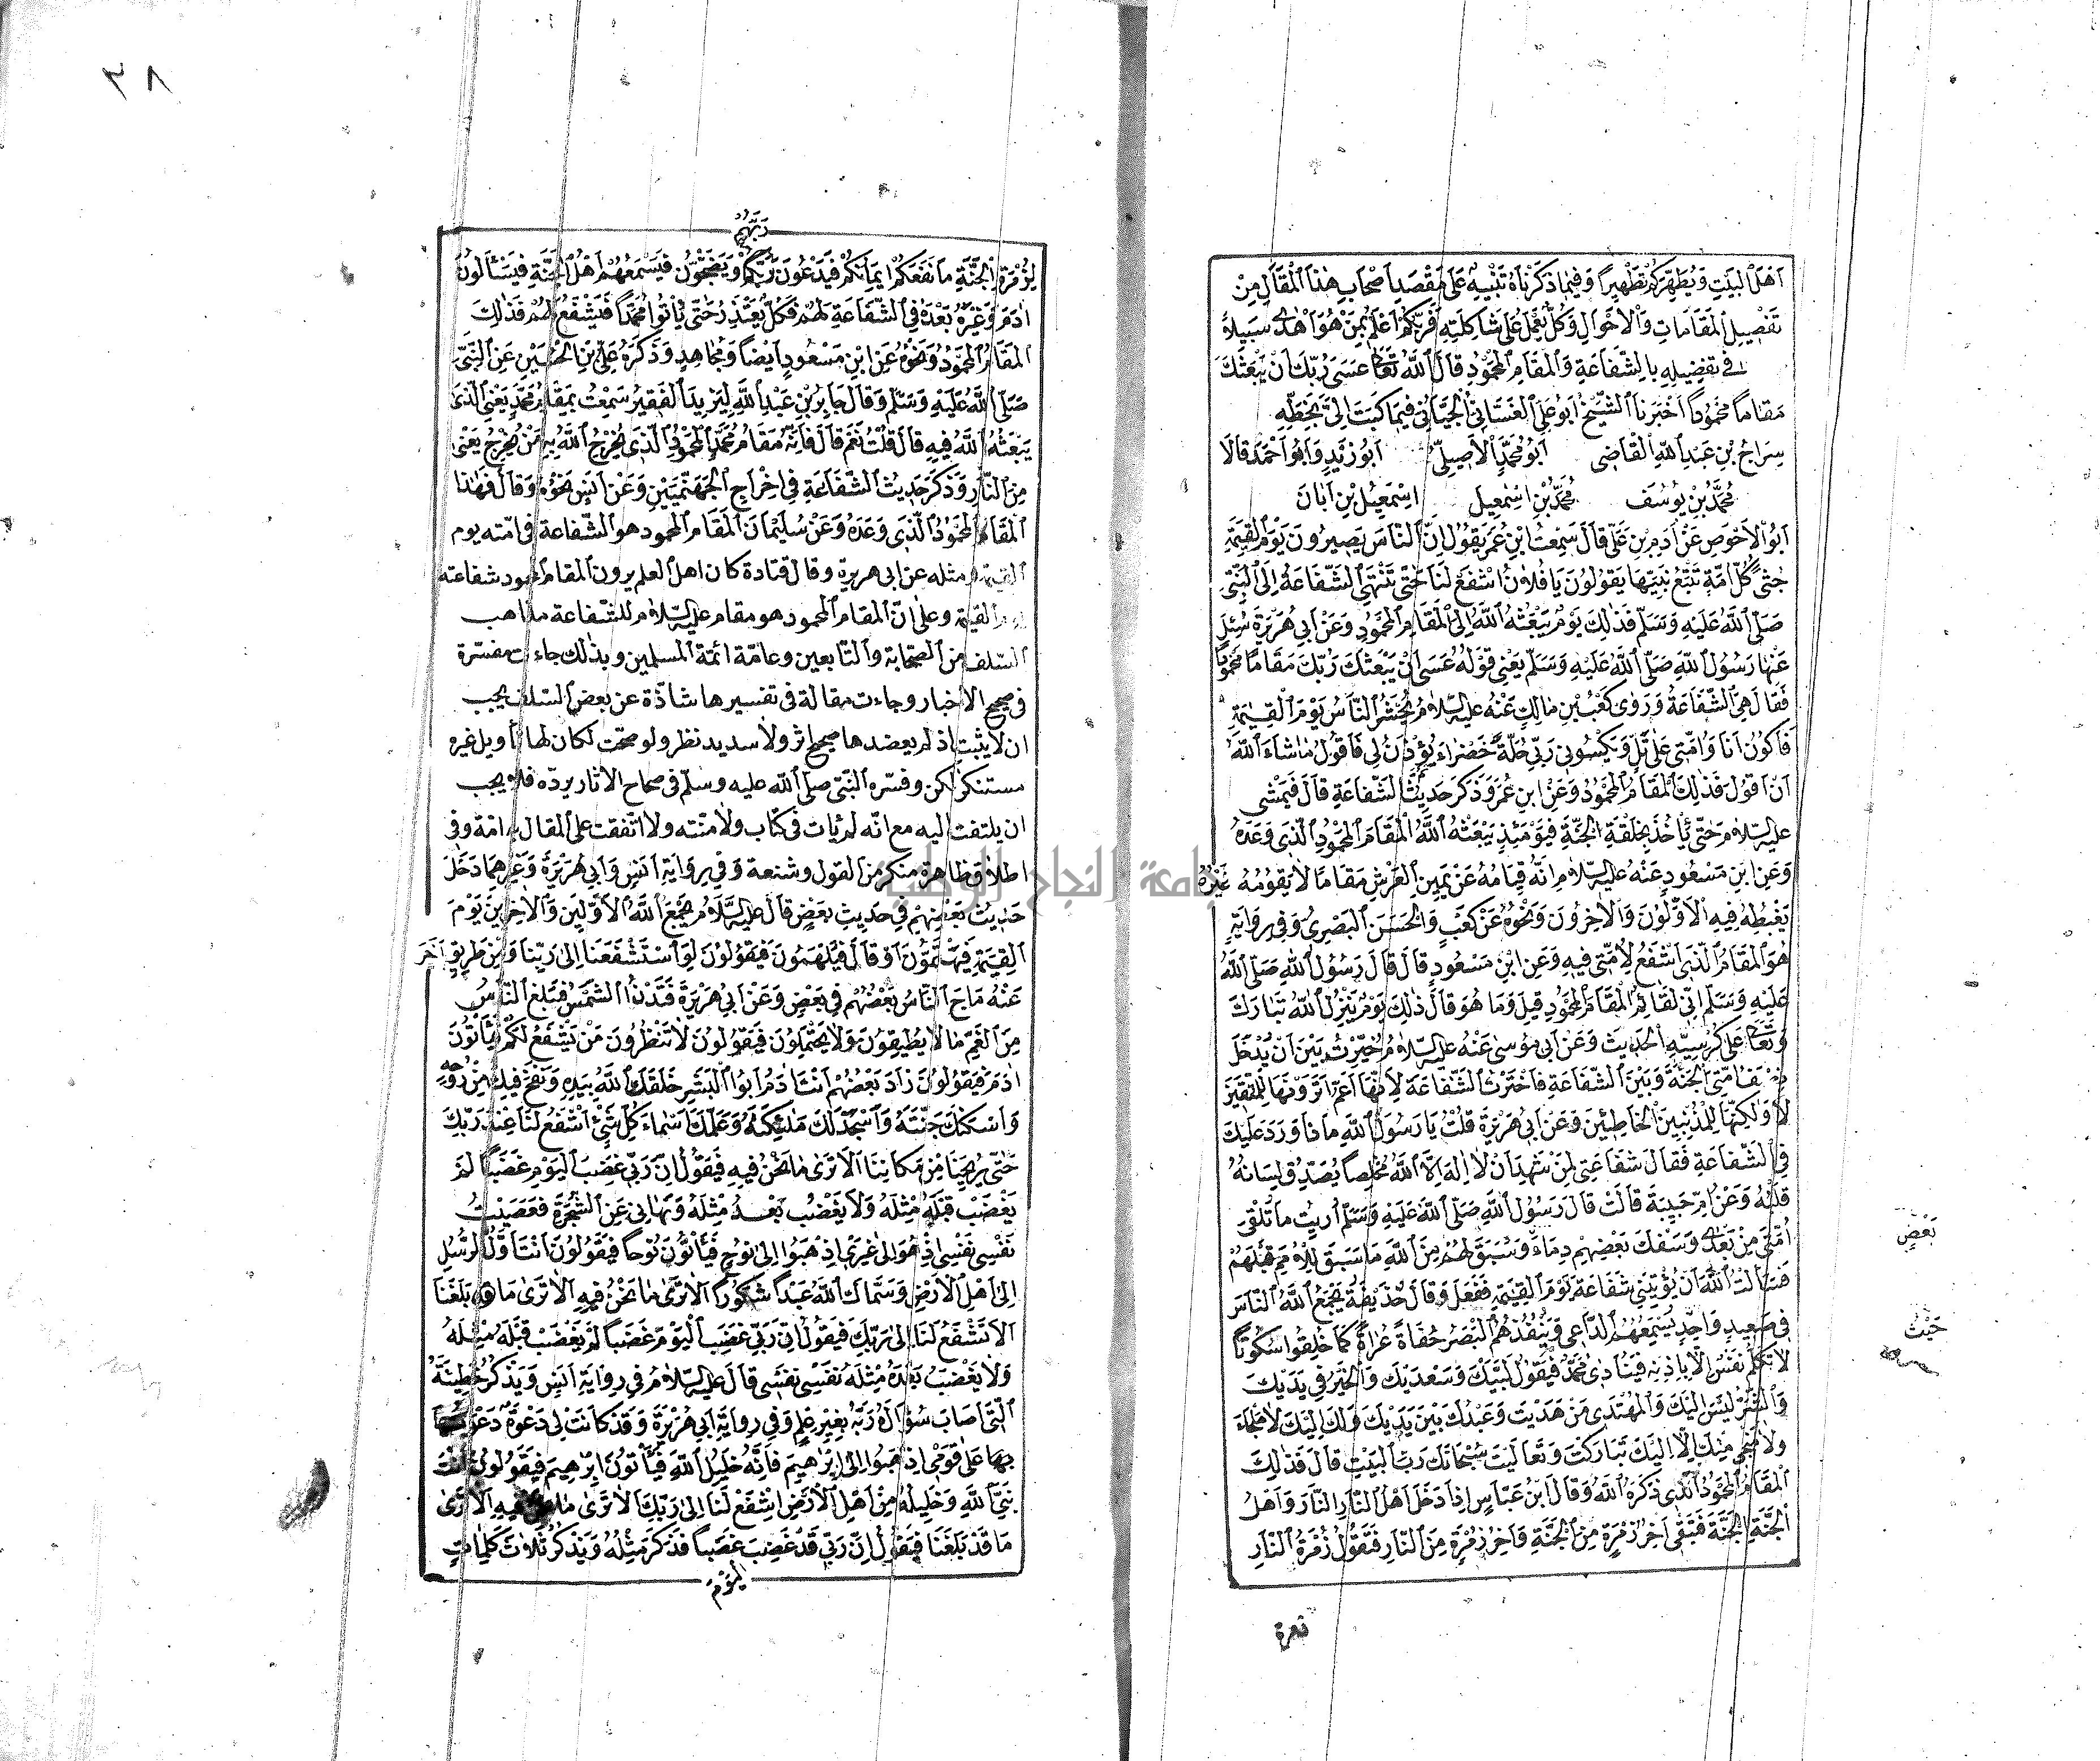 اَهْلَ البَيْتِ وَيُطَهِّرَكُمْ تَطْهِيراً وَفيمَا ذَكَرْنَاهُ تَنْبِيهٌ عَلَى مَقْصَدِ اَصْحَابِ هٰذَا الْمَقَالِ مِنْ
تَفْصِيلِ الْمَقَامَاتِ وَالْاَحْوَالِ وَكُلٌّ يَعْمَلُ عَلَى شَاكِلَتِهِ فَرَبُّكُمْ اَعْلَمُ بِمَنْ هُوَ اَهْدٰى سَبِيلاً
فى تفضيله بالشفاعة والمقام المحمود قال الله تعالى عسى ربك ان يبعثك
مقاماً محموداً اخبرنا الشيخ ابو على الغسانى الجيانى فيما كتب الى بخطه
سراج بن عبد الله القاضى ابو محمد الاصيلى ابو زيد وابو احمد قالا
محمد بن يوسف محمد بن اسمعيل اسمعيل بن ابان
ابو الاحوص عن ادم بن على قال سمعت ابن عمر يقول ان الناس يصيرون يوم القيمة
جثى كل امة تتبع نبيها يقولون يا فلان اشفع لنا حتى تنتهى الشفاعة الى النبى
صلى الله عليه وسلم فذلك يوم يبعثه الله الى المقام المحمود وعن ابى هريرة سئل
عنها رسول الله صلى الله عليه وسلم يعنى قوله عسى ان يبعثك ربك مقاما محمودا
فقال هى الشفاعة وروى كعب بن مالك عنه عليه السلام يحشر الناس يوم القيمة
فاكون انا وامتى على تل ويكسونى ربى حلة خضراء يؤذن لى فاقول ما شاء الله
ان اقول فذلك المقام المحمود وعن ابن عمر وذكر حديث الشفاعة قال فيمشى
عليه السلام حتى ياخذ بحلقة الجنة فيومئذ يبعثه الله المقام المحمود الذى وعده
وعن ابن مسعود عنه عليه السلام انه قيامه عن يمين العرش مقاما لا يقومه غيره
يغبطه فيه الاولون والاخرون ونحوه عن كعب والحسن البصرى وفى رواية
هو المقام الذى اشفع لامتى فيه وعن ابن مسعود قال قال رسول الله صلى الله
عليه وسلم انى لقائم المقام المحمود قيل وما هو قال ذلك يوم ينزل الله تبارك
وتعالى على كرسيه الحديث وعن ابى موسى عنه عليه السلام خيرت بين ان يدخل
نصف امتى الجنة وبين الشفاعة فاخترت الشفاعة لانها اعم اترونها للمتقين
لا ولكنها للمذنبين الخاطئين وعن ابى هريرة قلت يا رسول الله ماذا ورد عليك
فى الشفاعة فقال شفاعتى لمن شهد ان لا اله الا الله مخلصا يصدق لسانه
قلبه وعن ام حبيبة قالت قال رسول الله صلى الله عليه وسلم اريت ما تلقى
امتى من بعدى وسفك بعضهم دماء وسبق لهم من الله ما سبق للامم قبلهم
بعض
فسالت الله ان يؤتينى شفاعة يوم القيمة ففعل وقال حذيفة يجمع الله الناس
فى صعيد واحد يسمعهم الداعى وينفذهم البصر حفاة عراة كما خلقوا سكوتا
حيث
لا تكلم نفس الا باذنه فينادى محمد فيقول لبيك وسعديك والخير فى يديك
والشر ليس اليك والمهتدى من هديت وعبدك بين يديك ولك اليك لا ملجاء
ولا منجى منك الا اليك تباركت وتعاليت سبحانك رب البيت قال فذلك
المقام المحمود الذى ذكره الله وقال ابن عباس اذا دخل اهل النار النار واهل
الجنة الجنة فتبقى اخر زمرة من الجنة واخر زمرة من النار فتقول زمرة النار
٣٨
ربهم
لزمرة الجنة ما نفعكم ايمانكم فيدعون ربهم ويضجون فيسمعهم اهل الجنة فيسئالون
ادم وغيره بعده فى الشفاعة لهم فكل يعتذر حتى ياتوا محمدا فيشفع لهم فذلك
المقام المحمود ونحوه عن ابن مسعود ايضا ومجاهد وذكره على بن الحسين عن النبى
صلى الله عليه وسلم وقال جابر بن عبد الله ليزيد الفقير سمعت بمقام محمد يعنى الذى
يبعثه الله فيه قال قلت نعم قال فانه مقام محمد المحمود الذى يخرج الله به من يخرج يعنى
من النار وذكر حديث الشفاعة فى اخراج الجهنميين وعن انس نحوه وقال فهذا
المقام المحمود الذى وعده وعن سليمان المقام المحمود هو الشفاعة فى امته يوم
القيمة ومثله عن ابى هريرة وقال قتادة كان اهل العلم يرون المقام المحمود شفاعته
يوم القيمة وعلى ان المقام المحمود هو مقام عليه السلام للشفاعة مذاهب
السلف من الصحابة والتابعين وعامة ائمة المسلمين وبذلك جاءت مفسرة
فى صحيح الاخبار وجاءت مقالة فى تفسيرها شاذة عن بعض السلف يجب
ان لا يثبت اذ لم يعضدها صحيح اثر ولا سديد نظر ولو صحت لكان لها تأويل غير
مستنكر لكن وفسره النبى صلى الله عليه وسلم فى صحاح الاثار يرده فلا يجب
ان يلتفت اليه مع انه لم يات فى كتاب ولا سنته ولا اتفقت على المقال به امة وفى
اطلاق ظاهره منكر من القول وشنعة وفى رواية انس وابى هريرة وغيرهما دخل
حديث بعضهم فى حديث بعض قال عليه السلام يجمع الله الاولين والاخرين يوم
القيمة فيهتمون او قال فيلهمون فيقولون لو استشفعنا الى ربنا ومن طريق اخر
عنه ماج الناس بعضهم فى بعض وعن ابى هريرة فتدنوا الشمس فتبلغ الناس
من الغم ما لا يطيقون ولا يحتملون فيقولون لا تنظرون من يشفع لكم فيأتون
ادم فيقولون زاد بعضهم انت ادم ابوا البشر خلقك الله بيده ونفخ فيك من روحه
واسكنك جنته واسجد لك ملئكته وعلمك اسماء كل شئ اشفع لنا عند ربك
حتى يريحنا من مكاننا الا ترى ما نحن فيه فيقول ان ربى غضب اليوم غضبا لم
يغضب قبله مثله ولا يغضب بعد مثله ونهانى عن الشجرة فعصيت
نفسى نفسى اذهبوا الى غيرى اذهبوا الى نوح فيأتون نوحا فيقولون انت اول الرسل
الى اهل الارض وسماك الله عبدا شكورا الا ترى ما نحن فيه الا ترى ما بلغنا
الا تشفع لنا الى ربك فيقول ان ربى غضب اليوم غضبا لم يغضب قبله مثله
ولا يغضب بعده مثله نفسى نفسى قال عليه السلام فى رواية انس ويذكر خطيئته
التى اصاب سؤاله ربه بغير علم وفى رواية ابى هريرة وقد كانت لى دعوة دعوتها
بها على قومى اذهبوا الى ابرهيم فانه خليل الله فيأتون ابرهيم فيقولون انت
نبى الله وخليله من اهل الارض اشفع لنا الى ربك الا ترى ما نحن فيه الا ترى
ما قد بلغنا فيقول ان ربى قد غضب غضبا فذكر مثله ويذكر ثلاث كلمات
اليوم
جامعة النجاح الوطنية